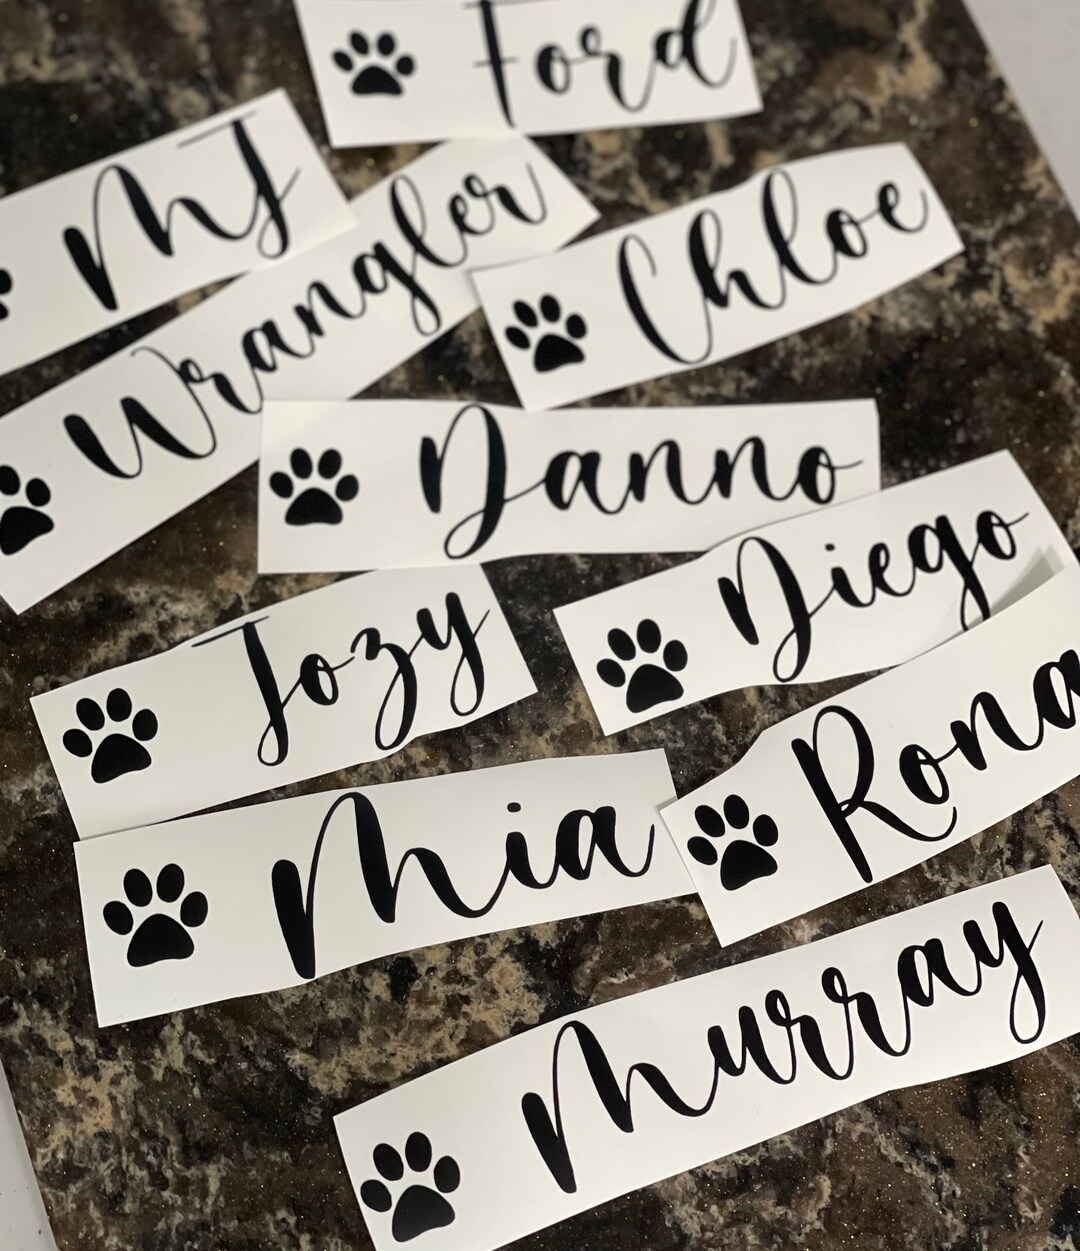 Ford
MJ
Wrangler
Chloe
Danno
Diego
Jozy
Rona
Mia
Murray